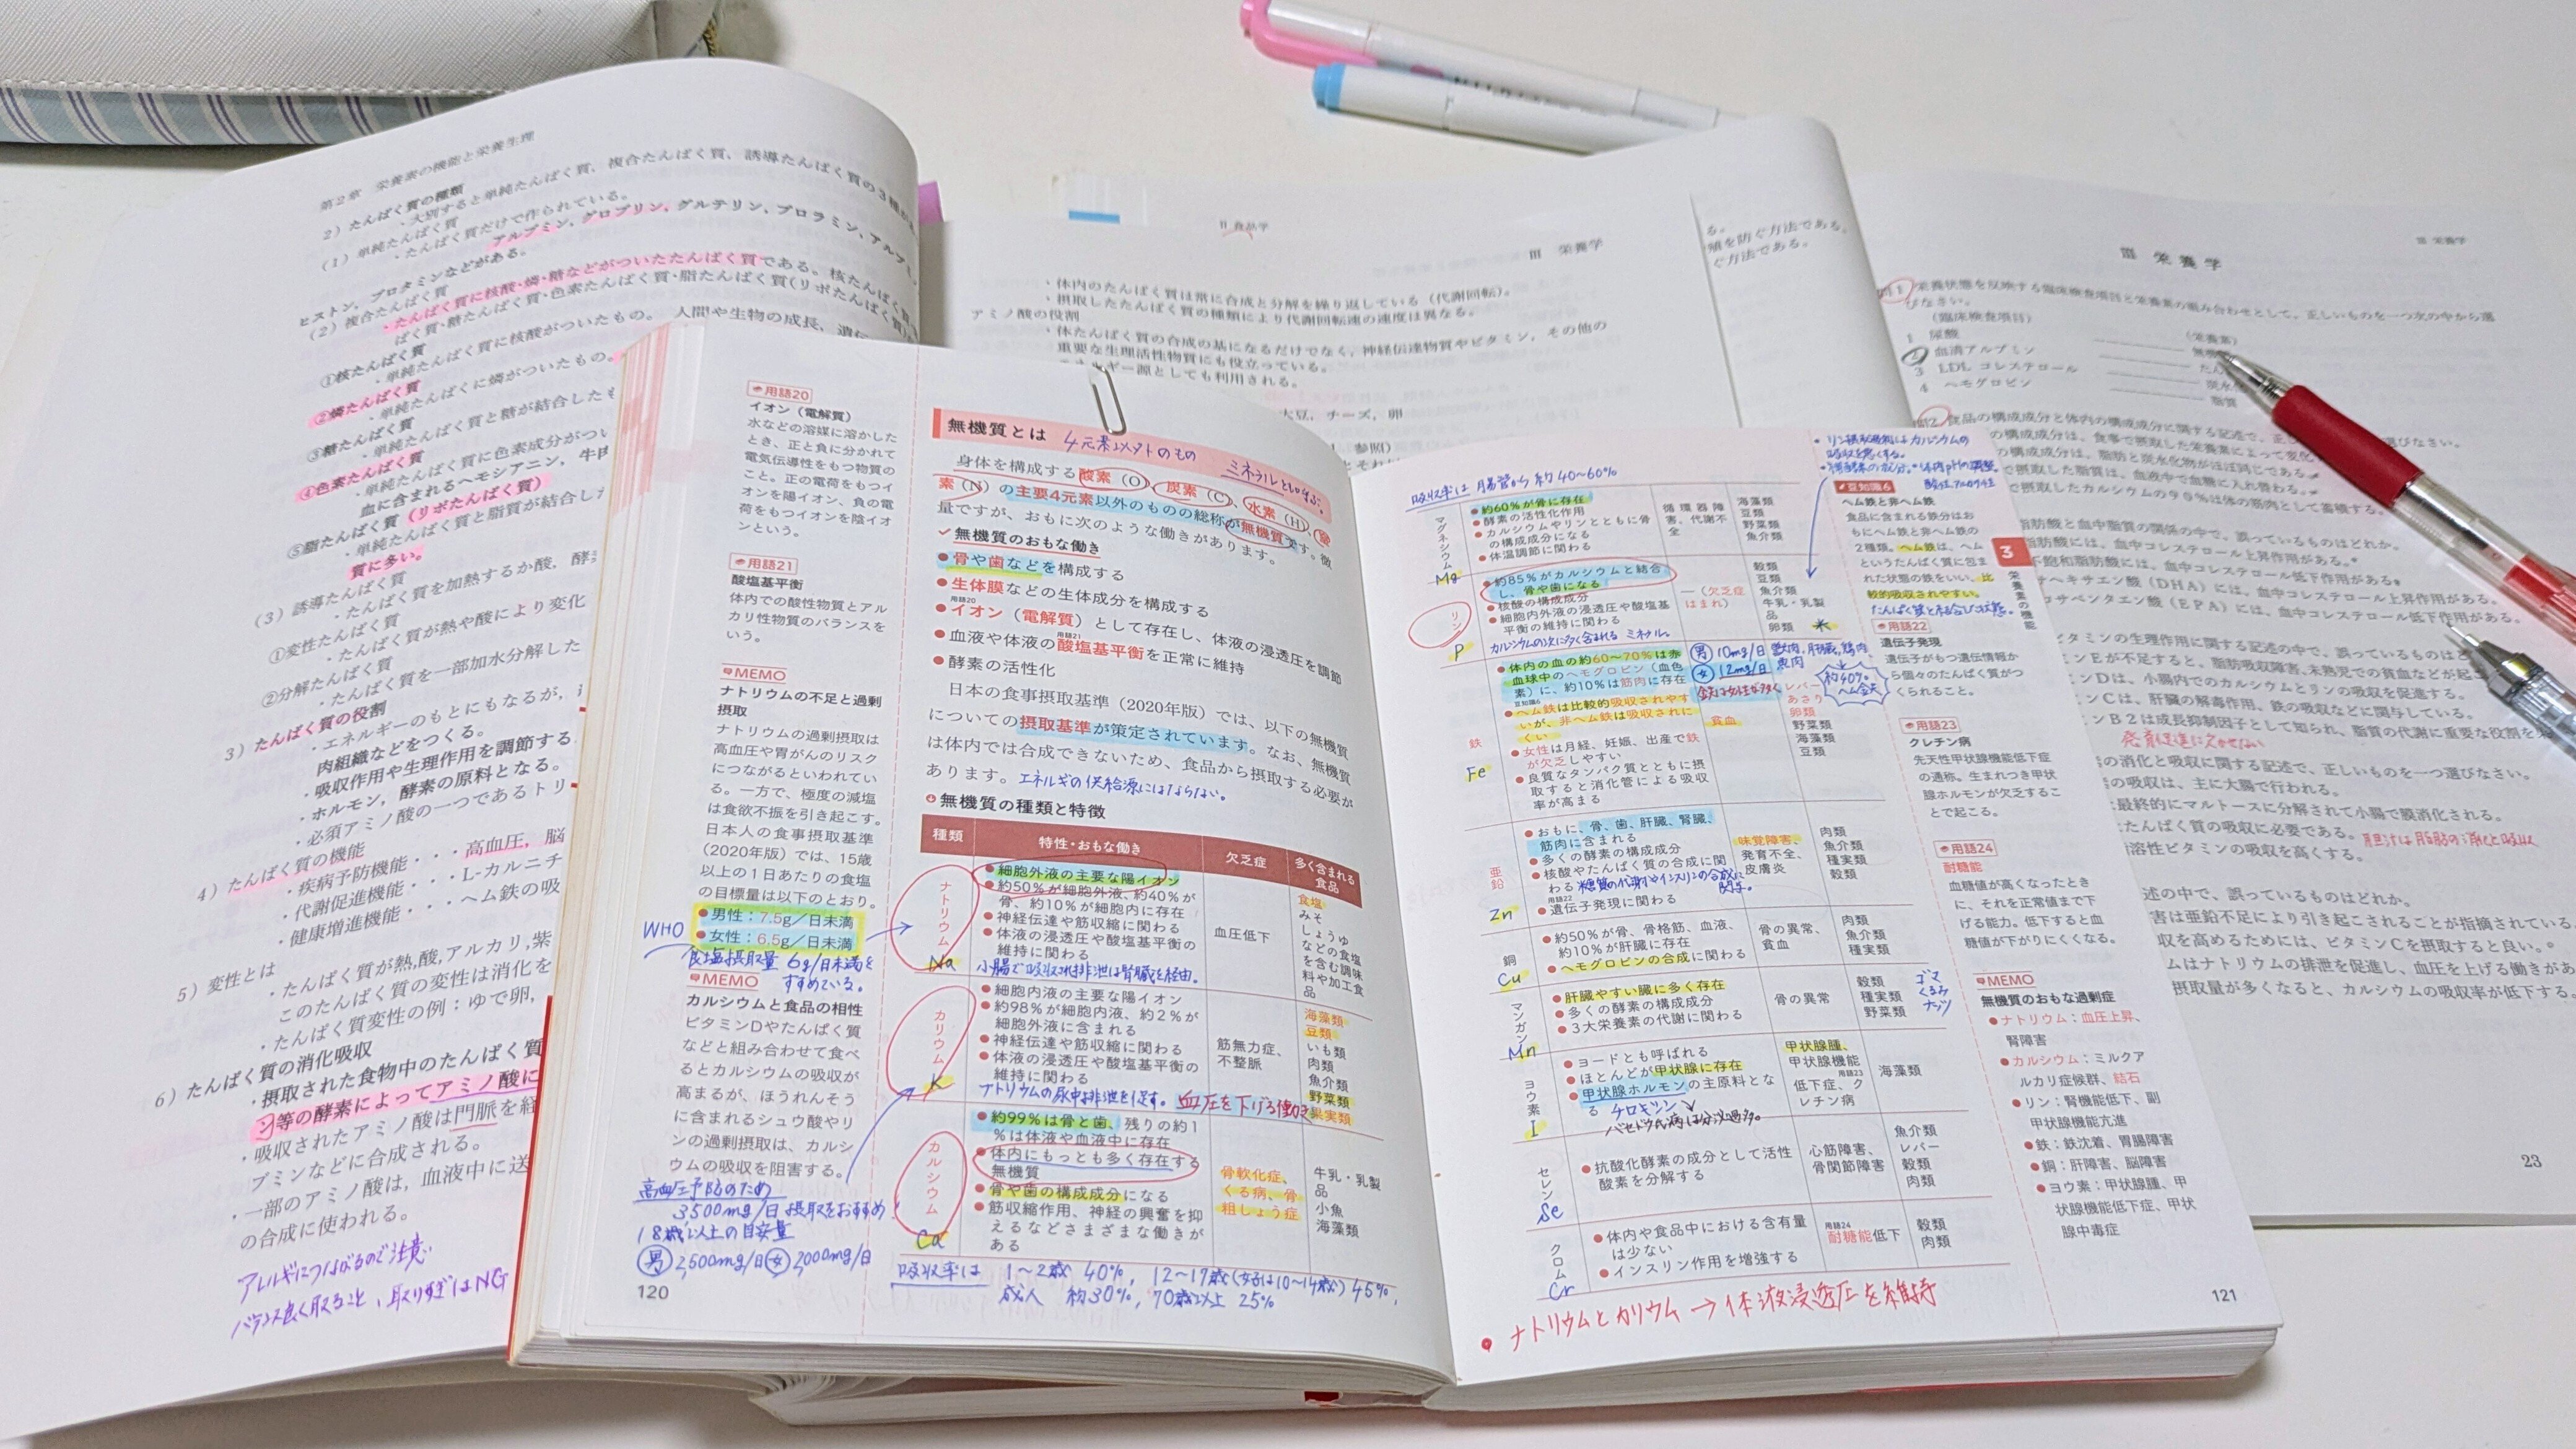 第2章 栄養素の機能と栄養生理
2）たんぱく質の種類
・大別すると単純たんぱく質，複合たんぱく質，誘導たんぱく質の3種
（1）単純たんぱく質
・たんぱく質だけで作られている。
アルブミン，グロブリン，グルテリン，プロラミン，アル
ヒストン，プロタミンなどがある。
（2）複合たんぱく質
・たんぱく質に核酸・燐・糖などがついたたんぱく質である。核たんぱく
ぱく質・糖たんぱく質・色素たんぱく質・脂たんぱく質（リポたんぱく質）
①核たんぱく質
・単純たんぱく質に核酸がついたもの。 人間や生物の成長，遺伝
②燐たんぱく質
・単純たんぱくに燐がついたもの。
③糖たんぱく質
・単純たんぱく質と糖が結合したも
④色素たんぱく質
・単純たんぱく質に色素成分がつい
血に含まれるヘモシアニン，牛肉
⑤脂たんぱく質（リポたんぱく質）
・単純たんぱく質と脂質が結合した
質に多い。
（3）誘導たんぱく質
・たんぱく質を加熱するか酸，酵
①変性たんぱく質
・たんぱく質が熱や酸により変化
②分解たんぱく質
・たんぱく質を一部加水分解した
3）たんぱく質の役割
・エネルギーのもとにもなるが，
肉組織などをつくる。
・吸収作用や生理作用を調節する
・ホルモン，酵素の原料となる。
・必須アミノ酸の一つであるトリ
4）たんぱく質の機能
・疾病予防機能・・・高血圧，脳
・代謝促進機能・・・L-カルニチ
・健康増進機能・・・ヘム鉄の吸
5）変性とは
・たんぱく質が熱,酸,アルカリ,紫
このたんぱく質の変性は消化を
・たんぱく質変性の例：ゆで卵，
6）たんぱく質の消化吸収
・摂取された食物中のたんぱく質
ン等の酵素によってアミノ酸に
・吸収されたアミノ酸は門脈を経
ブミンなどに合成される。
・一部のアミノ酸は，血液中に送
の合成に使われる。
アレルギーにつながるので注意
バランス良く取ること、取りすぎはNG
II 食品学
III 栄養学
・体内のたんぱく質は常に合成と分解を繰り返している（代謝回転）。
・摂取したたんぱく質の種類により代謝回転速の速度は異なる。
アミノ酸の役割
・体たんぱく質の合成の基になるだけでなく，神経伝達物質やビタミン，その他の
重要な生理活性物質にも役立っている。
ネルギー源としても利用される。
大豆，チーズ，卵
参照）
る。
殖を防ぐ方法である。
ぐ方法である。
用語20
イオン（電解質）
水などの溶媒に溶かした
とき、正と負に分かれて
電気伝導性をもつ物質の
こと。正の電荷をもつイ
オンを陽イオン、負の電
荷をもつイオンを陰イオ
ンという。
用語21
酸塩基平衡
体内での酸性物質とアル
カリ性物質のバランスを
いう。
MEMO
ナトリウムの不足と過剰
摂取
ナトリウムの過剰摂取は
高血圧や胃がんのリスク
につながるといわれてい
る。一方で、極度の減塩
は食欲不振を引き起こす。
日本人の食事摂取基準
（2020年版）では、15歳
以上の１日あたりの食塩
の目標量は以下のとおり。
●男性：7.5g／日未満
●女性：6.5g／日未満
WHO
食塩摂取量 6g/日未満を
すすめている。
MEMO
カルシウムと食品の相性
ビタミンDやたんぱく質
などと組み合わせて食べ
るとカルシウムの吸収が
高まるが、ほうれんそう
に含まれるシュウ酸やリ
ンの過剰摂取は、カルシ
ウムの吸収を阻害する。
高血圧予防のため
3500mg/日摂取をおすすめ
18歳以上の目安量
男2,500mg/日 女2,000mg/日
120
無機質とは 4元素以外のもの ミネラルともよぶ。
身体を構成する酸素（O）、炭素（C）、水素（H）、窒
素（N）の主要4元素以外のものの総称が無機質です。微
量ですが、おもに次のような働きがあります。
✓無機質のおもな働き
●骨や歯などを構成する
●生体膜などの生体成分を構成する
用語20
●イオン（電解質）として存在し、体液の浸透圧を調節
用語21
●血液や体液の酸塩基平衡を正常に維持
●酵素の活性化
日本の食事摂取基準（2020年版）では、以下の無機質
についての摂取基準が策定されています。なお、無機質
は体内では合成できないため、食品から摂取する必要が
あります。 エネルギの供給源にはならない。
無機質の種類と特徴
種類 特性・おもな働き 欠乏症 多く含まれる食品
ナトリウム Na
●細胞外液の主要な陽イオン
●約50％が細胞外液、約40％が
骨、約10％が細胞内に存在
●神経伝達や筋収縮に関わる
●体液の浸透圧や酸塩基平衡の
維持に関わる
小腸で吸収され排泄は腎臓を経由。
血圧低下
食塩
みそ
しょうゆ
などの食塩
を含む調味
料や加工食
品
カリウム K
●細胞内液の主要な陽イオン
●約98％が細胞内液、約2％が
細胞外液に含まれる
●神経伝達や筋収縮に関わる
●体液の浸透圧や酸塩基平衡の
維持に関わる
ナトリウムの尿中排泄を促す。 血圧を下げる働き
筋無力症、
不整脈
海藻類
豆類
いも類
肉類
魚介類
野菜類
果実類
カルシウム Ca
●約99％は骨と歯、残りの約1
％は体液や血液中に存在
●体内にもっとも多く存在する
無機質
●骨や歯の構成成分になる
●筋収縮作用、神経の興奮を抑
えるなどさまざまな働きが
ある
骨軟化症、
くる病、骨
粗しょう症
牛乳・乳製
品
小魚
海藻類
吸収率は 1〜2歳 40%, 12〜17歳(女子は10〜14歳) 45%,
成人 約30%, 70歳以上 25%
吸収率は 腸管から 約40〜60%
マグネシウム Mg
●約60％が骨に存在
●酵素の活性化作用
●カルシウムやリンとともに骨
の構成成分になる
●体温調節に関わる
循環器障
害、代謝不
全
海藻類
豆類
野菜類
魚介類
リン P
●約85％がカルシウムと結合
し、骨や歯になる
●核酸の構成成分
●細胞内外液の浸透圧や酸塩基
平衡の維持に関わる
カルシウムの次に多く含まれるミネラル。
―（欠乏症
はまれ）
穀類
豆類
魚介類
牛乳・乳製
品
卵類 米
鉄 Fe
●体内の血の約60〜70％は赤
血球中のヘモグロビン（血色
素）に、約10％は筋肉に存在
豆知識6
●ヘム鉄は比較的吸収されやす
いが、非ヘム鉄は吸収されに
くい
●女性は月経、妊娠、出産で鉄
が欠乏しやすい
●良質なタンパク質とともに摂
取すると消化管による吸収
率が高まる
男 10mg/日
女 12mg/日
貧血
魚肉
約40%
ヘム鉄
レバー
あさり
卵類
野菜類
海藻類
豆類
亜鉛 Zn
●おもに、骨、歯、肝臓、腎臓、
筋肉に含まれる
●多くの酵素の構成成分
●核酸やたんぱく質の合成に関
わる 糖質の代謝やインスリンの合成に
関与。
用語22
●遺伝子発現に関わる
味覚障害、
発育不全、
皮膚炎
肉類
魚介類
種実類
穀類
銅 Cu
●約50％が骨、骨格筋、血液、
約10％が肝臓に存在
●ヘモグロビンの合成に関わる
骨の異常、
貧血
肉類
魚介類
種実類
マンガン Mn
●肝臓やすい臓に多く存在
●多くの酵素の構成成分
●3大栄養素の代謝に関わる
骨の異常
穀類
種実類
野菜類
ゴマ
くるみ
ナッツ
ヨウ素 I
●ヨードとも呼ばれる
●ほとんどが甲状腺に存在
●甲状腺ホルモンの主原料とな
る チロキシン
バセドウ氏病は分泌過多。
甲状腺腫、
甲状腺機能
用語23
低下症、ク
レチン病
海藻類
セレン Se
●抗酸化酵素の成分として活性
酸素を分解する
心筋障害、
骨関節障害
魚介類
レバー
穀類
肉類
クロム Cr
●体内や食品中における含有量
は少ない
●インスリン作用を増強する
用語24
耐糖能低下
穀類
肉類
● ナトリウムとカリウム → 体液浸透圧を維持
リン摂取過剰はカルシウムの
吸収を悪くする。
豆知識6
ヘム鉄と非ヘム鉄
食品に含まれる鉄分はお
もにヘム鉄と非ヘム鉄の
2種類。ヘム鉄は、ヘム
というたんぱく質に包ま
れた状態の鉄をいい、比
較的吸収されやすい。
たんぱく質と結合した状態。
用語22
遺伝子発現
遺伝子がもつ遺伝情報か
ら個々のたんぱく質がつ
くられること。
用語23
クレチン病
先天性甲状腺機能低下症
の通称。生まれつき甲状
腺ホルモンが欠乏するこ
とで起こる。
用語24
耐糖能
血糖値が高くなったとき
に、それを正常値まで下
げる能力。低下すると血
糖値が下がりにくくなる。
MEMO
無機質のおもな過剰症
●ナトリウム：血圧上昇、
腎障害
●カルシウム：ミルクア
ルカリ症候群、結石
●リン：腎機能低下、副
甲状腺機能亢進
●鉄：鉄沈着、胃腸障害
●銅：肝障害、脳障害
●ヨウ素：甲状腺腫、甲
状腺機能低下症、甲状
腺中毒症
3
栄養素の機能
121
III 栄養学
III 栄養学
問1 栄養状態を反映する臨床検査項目と栄養素の組み合わせとして，正しいものを一つ次の中から選
びなさい。
（臨床検査項目） （栄養素）
1 尿酸
2 血清アルブミン
3 LDL コレステロール
4 ヘモグロビン
脂質
問2 食品の構成成分と体内の構成成分に関する記述で，正し
びなさい。
の構成成分は，食事で摂取した栄養素によって変化
の構成成分は，脂肪と炭水化物がほぼ同じである。
で摂取した脂質は，血液中で血糖に入れ替わる。
で摂取したカルシウムの99％は体の筋肉として蓄積する。
脂肪酸と血中脂質の関係の中で，誤っているものはどれか。
脂肪酸には，血中コレステロール上昇作用がある。
不飽和脂肪酸には，血中コレステロール低下作用がある。
サヘキサエン酸（DHA）には，血中コレステロール上昇作用がある。
コサペンタエン酸（EPA）には，血中コレステロール低下作用がある。
ビタミンの生理作用に関する記述の中で，誤っているものはど
ンEが不足すると，脂肪吸収障害，未熟児での貧血などが起
ンDは，小腸内でのカルシウムとリンの吸収を促進する。
ンCは，肝臓の解毒作用，鉄の吸収などに関与している。
ンB2は成長抑制因子として知られ，脂質の代謝に重要な役割を
発育促進に欠かせない
の消化と吸収に関する記述で，正しいものを一つ選びなさい。
の吸収は，主に大腸で行われる。
最終的にマルトースに分解されて小腸で膜消化される。
たんぱく質の吸収に必要である。 胆汁は脂肪の消化と吸収
溶性ビタミンの吸収を高くする。
述の中で，誤っているものはどれか。
害は亜鉛不足により引き起こされることが指摘されている。
収を高めるためには，ビタミンCを摂取すると良い。
ムはナトリウムの排泄を促進し，血圧を上げる働きがあ
摂取量が多くなると，カルシウムの吸収率が低下する。
23